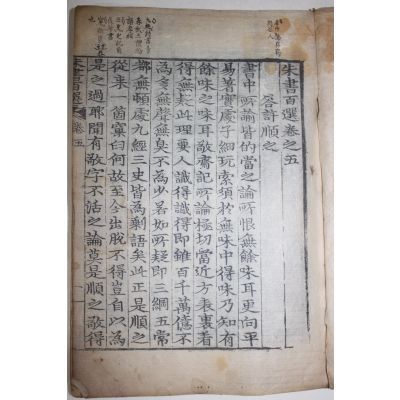 朱書百選卷之五
答許順之
書中所論皆的當之論所恨無餘味耳更向平
易著實處子細玩索須於無味中得味乃知有
餘味之味耳敬齋記所論極切當近方表裏看
得無疑此理要人識得識得即雖百千萬億不
為多無聲無臭不為少若如所疑即三綱五常
都無頓處九經三史皆為剩語矣此正是順之
從來一箇窠臼何故至今出脫不得豈自以為
是之過耶聞有敬字不活之論莫是順之敬得
朱書百選
卷五